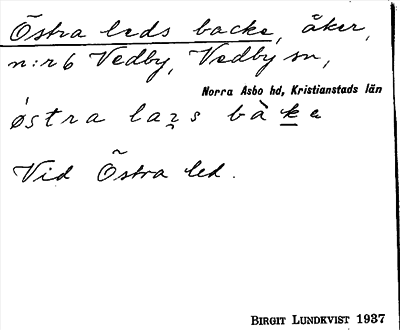 Östra leds backe, åker,
n:r 6 Vedby, Vedby sn,
Norra Asbo hd, Kristianstads län
østra laʒs bàke
Vid Östra led.
BIRGIT LUNDKVIST 1937